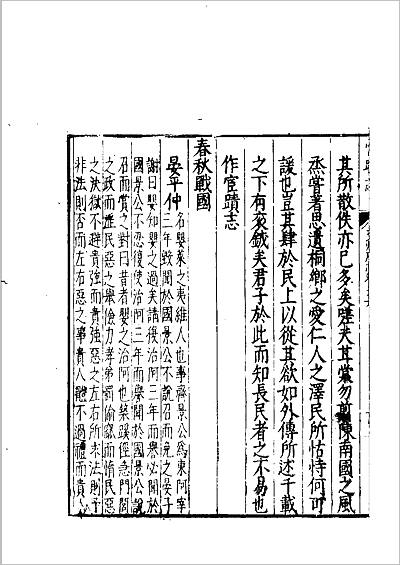 其所散佚亦已多矣嗟夫甘棠勿剪陳南國之風
烝嘗著思遺桐鄉之愛仁人之澤民所怙恃何可
諼也豈其肆於民上以從其欲如外傳所述千載
之下有衮鉞夫君子於此而知長民者之不易也
作宦蹟志
春秋戰國
晏平仲名嬰萊之夷維人也事齊景公為東阿宰
三年毀聞於國景公不說召而免之晏子
謝曰嬰知嬰之過矣請復治阿三年而譽必聞於
國景公不忍復使治阿三年而譽聞於國景公說
召而賞之對曰昔者嬰之治阿也築蹊徑急門閭
之政而淫民惡之舉儉力孝弟罰偷窳而惰民惡
之決獄不避貴強而貴強惡之左右所求法則予
非法則否而左右惡之事貴人體不過禮而貴人